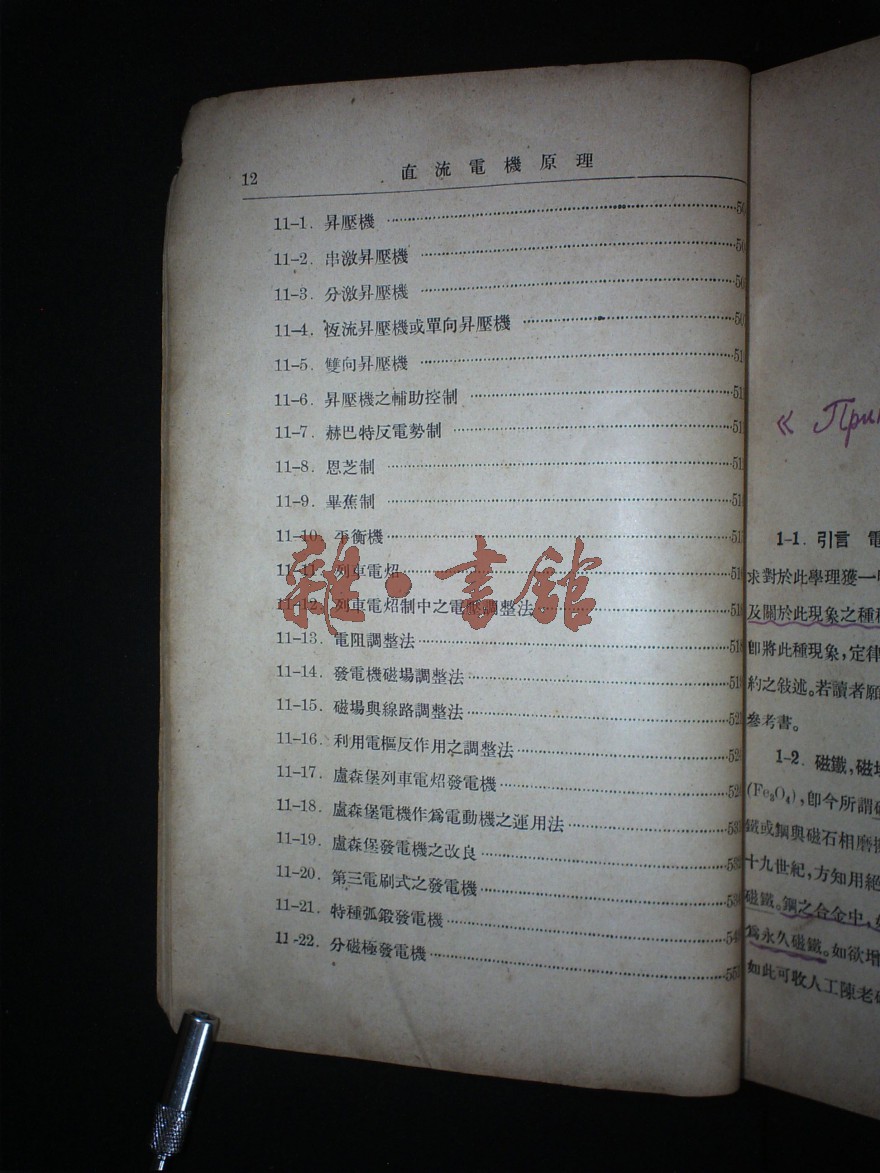 12 直流電機原理
11-1. 昇壓機
11-2. 串激昇壓機
11-3. 分激昇壓機
11-4. 恆流昇壓機或單向昇壓機
11-5. 雙向昇壓機
11-6. 昇壓機之輔助控制
11-7. 赫巴特反電勢制
11-8. 恩芝制
11-9. 畢蕉制
11-10. 平衡機
11-11. 列車電炤
11-12. 列車電炤制中之電壓調整法
11-13. 電阻調整法
11-14. 發電機磁場調整法
11-15. 磁場與線路調整法
11-16. 利用電樞反作用之調整法
11-17. 盧森堡列車電炤發電機
11-18. 盧森堡電機作爲電動機之運用法
11-19. 盧森堡發電機之改良
11-20. 第三電刷式之發電機
11-21. 特種弧鍛發電機
11-22. 分磁極發電機
雜·書館
« При
1-1. 引言 電
求對於此學理獲一
及關於此現象之種
卽將此種現象,定律
約之敍述。若讀者願
參考書。
1-2. 磁鐵,磁
(Fe₃O₄),卽今所謂
鐵或鋼與磁石相磨
十九世紀,方知用絕
磁鐵。鋼之合金中,
爲永久磁鐵。如欲增
如此可收人工陳老